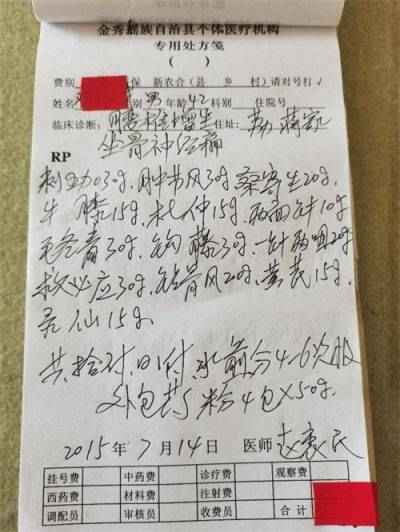 金秀瑶族自治县个体医疗机构
专用处方笺
（ ）
费别 保 新农合（县 乡 村）请对号打√
姓名 男 年龄 42 科别 住院号
临床诊断： 腰椎增生 住址：
坐骨神经痛
RP
30g、 风30g、桑寄生20g、
牛膝15g、杜仲15g、两面针10g
30g、钩藤30g、一针两咀20g
救必应30g、 风20g、黄芪15g、
灵仙15g、
共拾付、日1付 水煎分4-6次服
外包药粉4包×50g.
2015年7月14日 医师
挂号费 中药费 诊疗费 观察费
西药费 材料费 注射费
调配员 审核员 收费员 合计